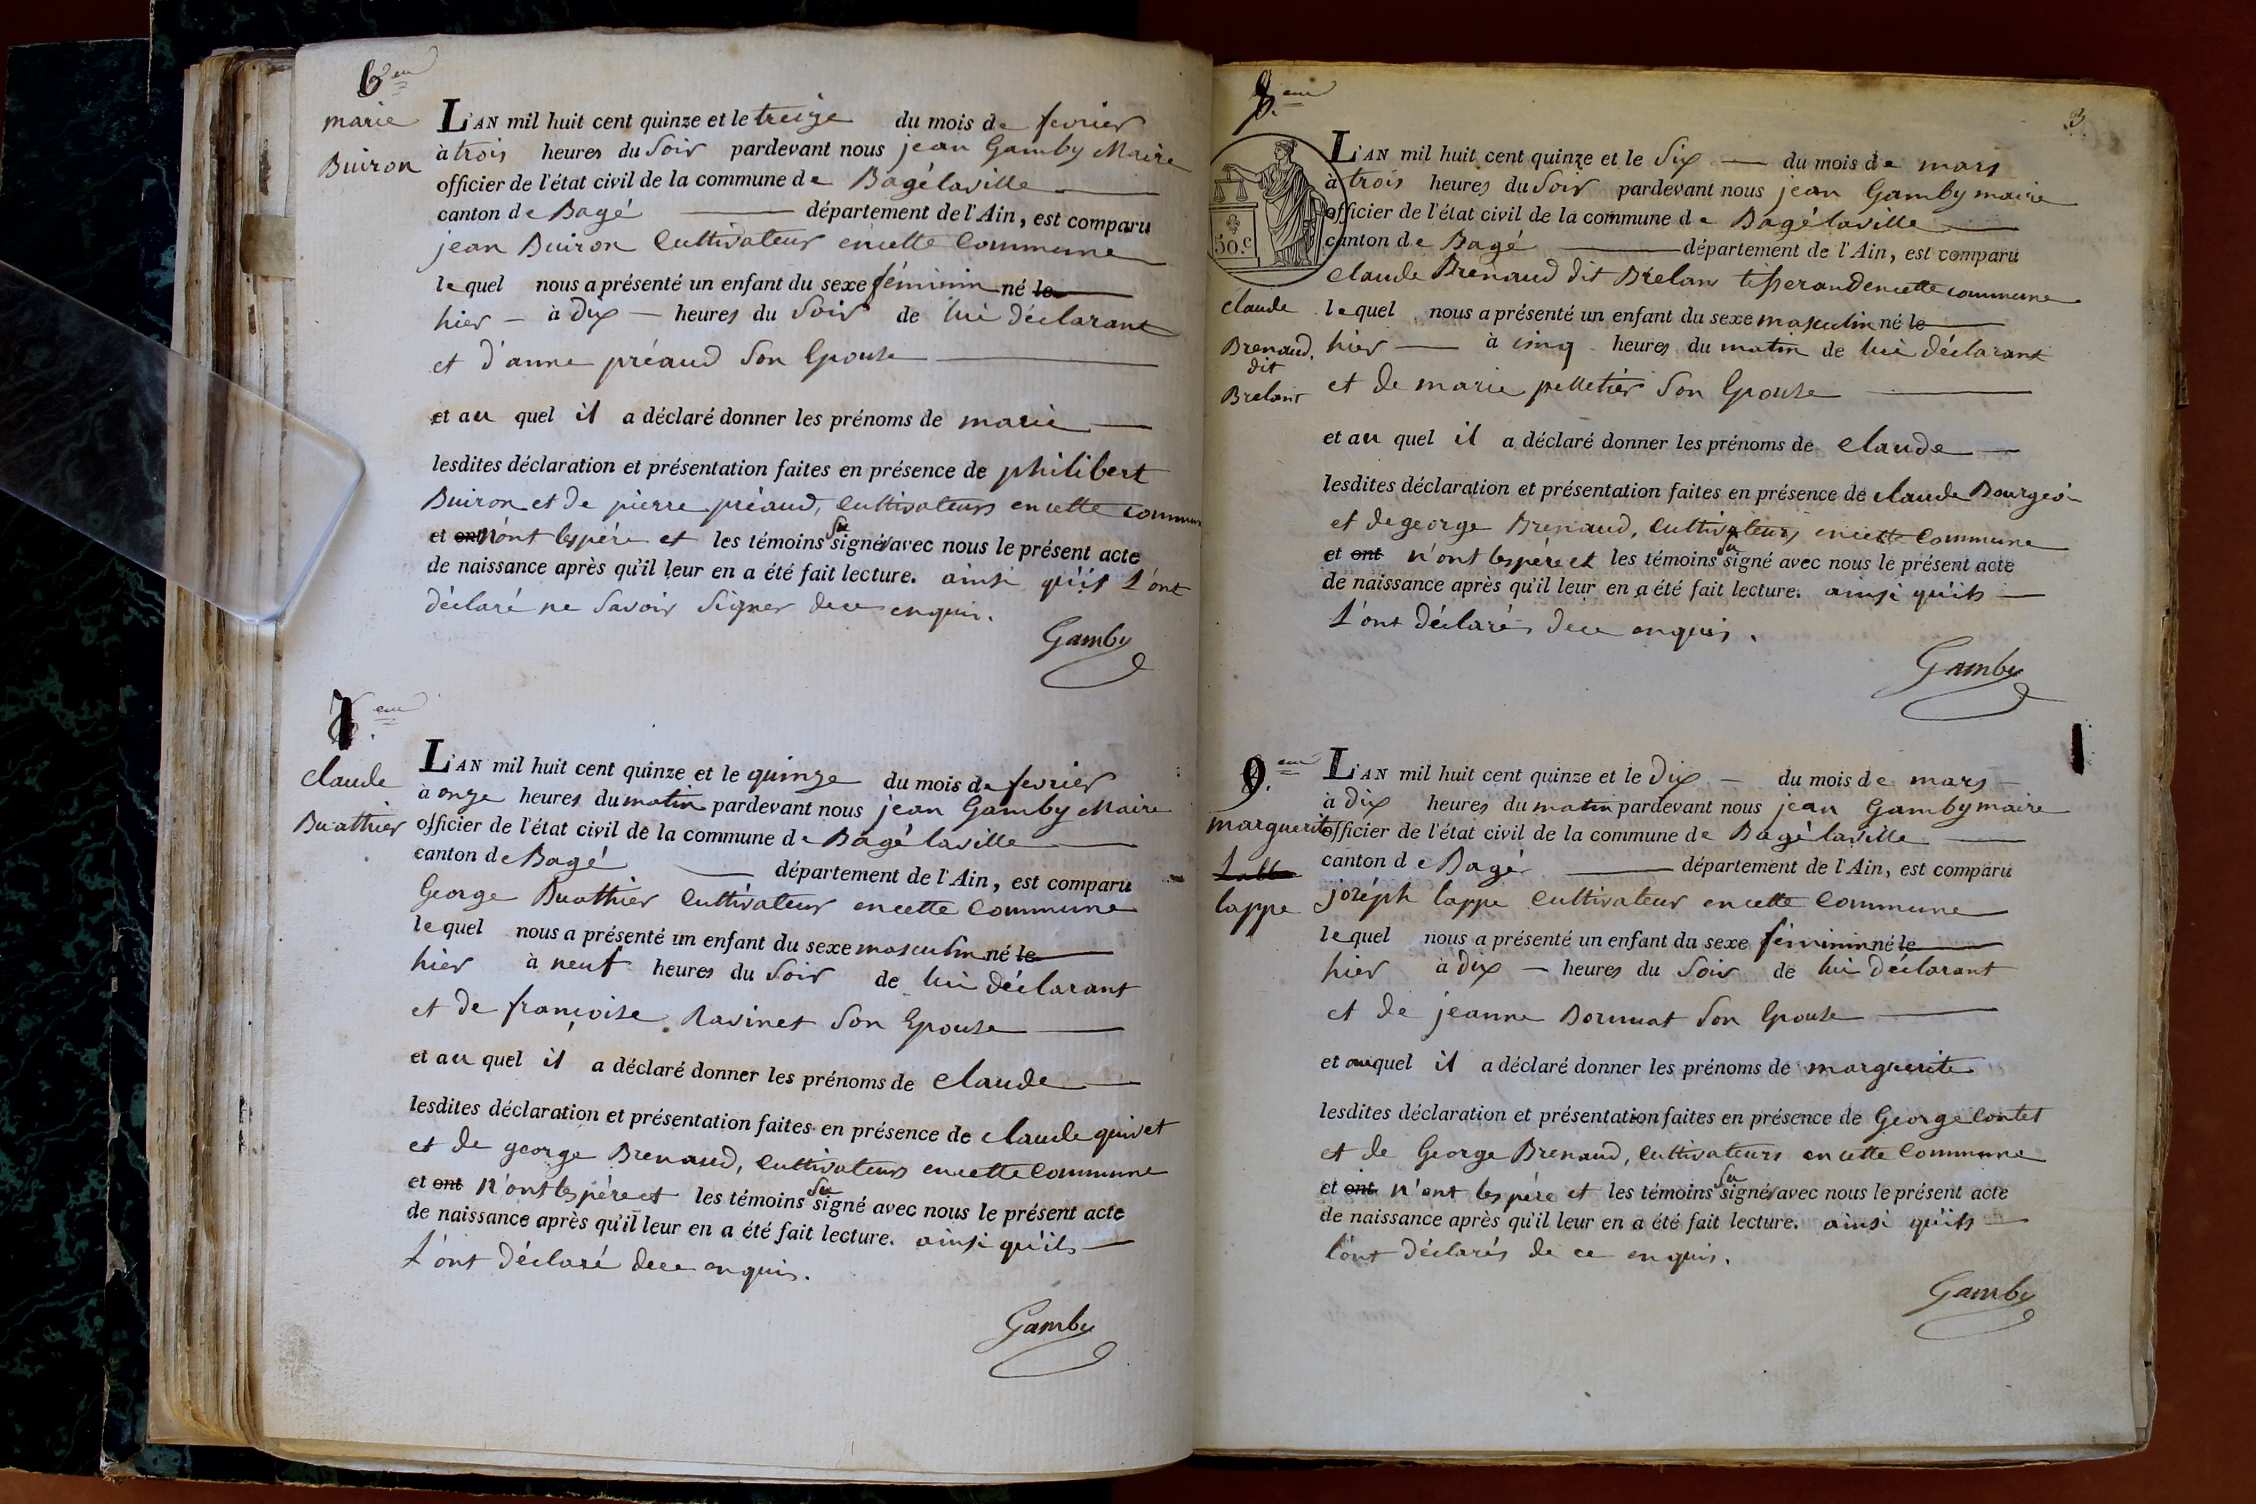 6.em
marie
Buiron
L'AN mil huit cent quinze et le treize du mois de fevrier
à trois heures du Soir pardevant nous jean Gamby Maire
officier de l'état civil de la commune de Bagélaville
canton de Bagé département de l'Ain, est comparu
jean Buiron Cultivateur en cette Commune
lequel nous a présenté un enfant du sexe féminin né le
hier à dix heures du Soir de lui déclarant
et d'anne préaud Son Epouse
et au quel il a déclaré donner les prénoms de marie
lesdites déclaration et présentation faites en présence de philibert
Buiron et de pierre préaud, Cultivateurs en cette commune
et ont n'ont les père et les témoins Su signer avec nous le présent acte
de naissance après qu'il leur en a été fait lecture. ainsi qu'ils L'ont
déclaré ne Savoir Signer de ce enquis.
Gamby
7.em
claude
Buathier
L'AN mil huit cent quinze et le quinze du mois de fevrier
à onze heures du matin pardevant nous jean Gamby Maire
officier de l'état civil de la commune de Bagé laville
canton de Bagé département de l'Ain, est comparu
George Buathier Cultivateur en cette Commune
lequel nous a présenté un enfant du sexe masculin né le
hier à neuf heures du Soir de lui déclarant
et de françoise Ravinet Son Epouse
et au quel il a déclaré donner les prénoms de claude
lesdites déclaration et présentation faites en présence de claude quivet
et de george Brenaud, Cultivateurs en cette Commune
et ont n'ont les père et les témoins Su signé avec nous le présent acte
de naissance après qu'il leur en a été fait lecture. ainsi qu'ils
L'ont déclaré de ce enquis.
Gamby
3.
8.em
50.c
claude
Brenaud,
dit
Brelans
L'AN mil huit cent quinze et le Six du mois de mars
à trois heures du Soir pardevant nous jean Gamby maire
officier de l'état civil de la commune de Bagélaville
canton de Bagé département de l'Ain, est comparu
claude Brenaud dit Brelans tisserand en cette commune
lequel nous a présenté un enfant du sexe masculin né le
hier à cinq heures du matin de lui déclarant
et de marie pelletier Son Epouse
et au quel il a déclaré donner les prénoms de claude
lesdites déclaration et présentation faites en présence de claude Bourgeois
et de george Brenaud, Cultivateurs en cette Commune
et ont n'ont les père et les témoins Su signé avec nous le présent acte
de naissance après qu'il leur en a été fait lecture. ainsi qu'ils
L'ont déclarés de ce enquis.
Gamby
9.em
marguerite
Labb
lappe
L'AN mil huit cent quinze et le dix du mois de mars
à dix heures du matin pardevant nous jean Gamby maire
officier de l'état civil de la commune de Bagé laville
canton de Bagé département de l'Ain, est comparu
joséph lappe Cultivateur en cette Commune
lequel nous a présenté un enfant du sexe féminin né le
hier à dix heures du Soir de lui déclarant
et de jeanne Bornuat Son Epouse
et au quel il a déclaré donner les prénoms de marguerite
lesdites déclaration et présentation faites en présence de George Contet
et de George Brenaud, Cultivateurs en cette Commune
et ont n'ont les père et les témoins Su signer avec nous le présent acte
de naissance après qu'il leur en a été fait lecture. ainsi qu'ils
l'ont déclarés de ce enquis.
Gamby